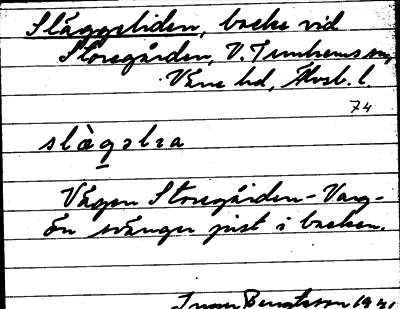 Släggeliden, backe vid
Storegården, V. Tunhems sn,
Väne hd, Älvsb. l.
74
slàgəlɪa
Vägen Storegården-Varg-
ön svänger just i backen.
Bengtsson